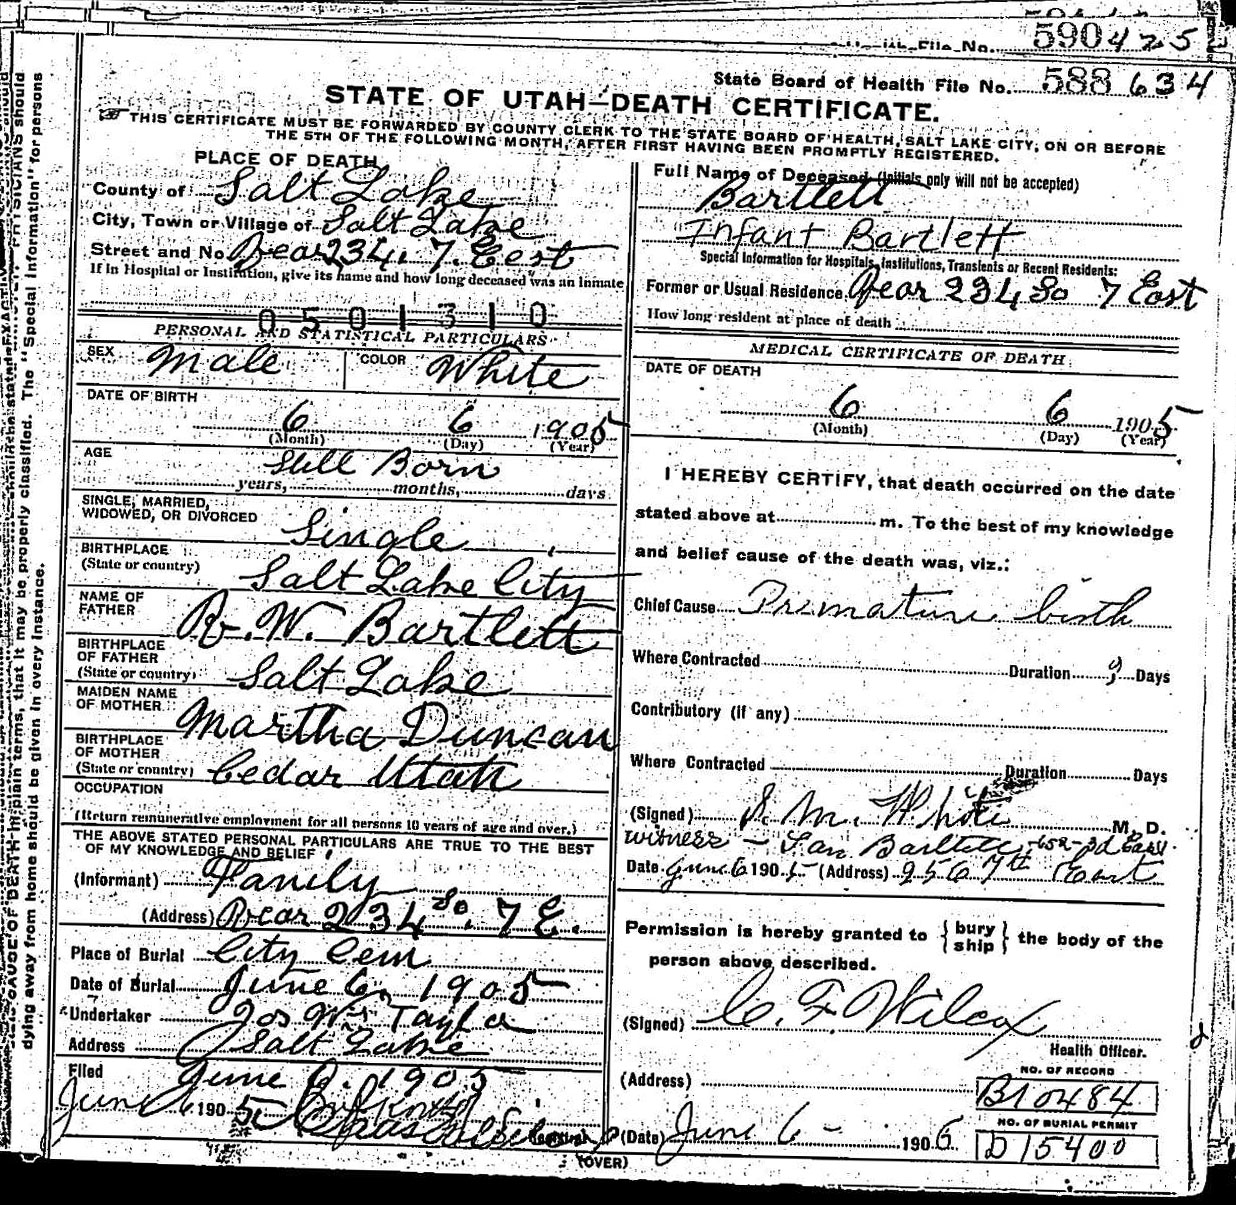 590425
State Board of Health File No. 588 634
STATE OF UTAH—DEATH CERTIFICATE.
THIS CERTIFICATE MUST BE FORWARDED BY COUNTY CLERK TO THE STATE BOARD OF HEALTH, SALT LAKE CITY, ON OR BEFORE
THE 5TH OF THE FOLLOWING MONTH, AFTER FIRST HAVING BEEN PROMPTLY REGISTERED.
PLACE OF DEATH
County of Salt Lake
City, Town or Village of Salt Lake
Street and No. Rear 234. 7. East
If in Hospital or Institution, give its name and how long deceased was an inmate
0501310
PERSONAL AND STATISTICAL PARTICULARS
SEX Male COLOR White
DATE OF BIRTH
6 6 1905
(Month) (Day) (Year)
AGE Still Born
years, months, days
SINGLE, MARRIED,
WIDOWED, OR DIVORCED Single
BIRTHPLACE
(State or country) Salt Lake City
NAME OF
FATHER R. W. Bartlett
BIRTHPLACE
OF FATHER
(State or country) Salt Lake
MAIDEN NAME
OF MOTHER Martha Duncan
BIRTHPLACE
OF MOTHER
(State or country) Cedar Utah
OCCUPATION
(Return remunerative employment for all persons 10 years of age and over.)
THE ABOVE STATED PERSONAL PARTICULARS ARE TRUE TO THE BEST
OF MY KNOWLEDGE AND BELIEF
(Informant) Family
(Address) Rear 234 So. 7 E.
Place of Burial City Cem
Date of Burial June 6, 1905
Undertaker Jos Wm Taylor
Address Salt Lake
Filed June 6. 1905
June 6 1905
Full Name of Deceased (Initials only will not be accepted)
Bartlett
Infant Bartlett
Special Information for Hospitals, Institutions, Transients or Recent Residents:
Former or Usual Residence Rear 234 So 7 East
How long resident at place of death
MEDICAL CERTIFICATE OF DEATH
DATE OF DEATH
6 6 1905
(Month) (Day) (Year)
I HEREBY CERTIFY, that death occurred on the date
stated above at m. To the best of my knowledge
and belief cause of the death was, viz.:
Chief Cause Premature birth
Where Contracted Duration ? Days
Contributory (if any)
Where Contracted Duration Days
(Signed) S. M. White M. D.
witness – Bartlett
Date June 6 1905 (Address) 256 7th East
Permission is hereby granted to { bury ship } the body of the
person above described.
(Signed) C. F. Wilcox
Health Officer.
(Address)
NO. OF RECORD
B10484
NO. OF BURIAL PERMIT
D15400
(Date) June 6 - 1906
(OVER)
dying away from home should be given in every instance.
CAUSE OF DEATH in plain terms, that it may be properly classified. The "Special Information" for persons